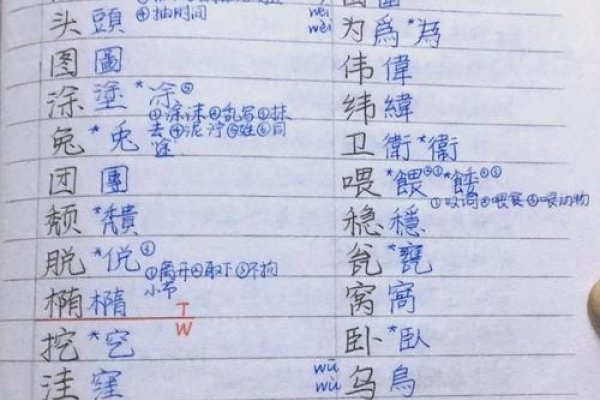 头 頭 ④抽时间
图 圖
涂 塗 *凃⑤
①涂沫②乱写③抹
去④泥泞⑤姓⑥同
途
兔 *兎
团 團
颓 *穨
脱 *侻②
①离开②取下③不拘
小节
椭 橢
T
W
挖 *穵
洼 窪
wéi
wèi
为 爲 *為
伟 偉
纬 緯
卫 衛 *衞
喂 *餵 *餧
①叹词②喂食③喂动物
稳 穩
瓮 *甕
窝 窩
卧 *臥
wū
wù
乌 烏